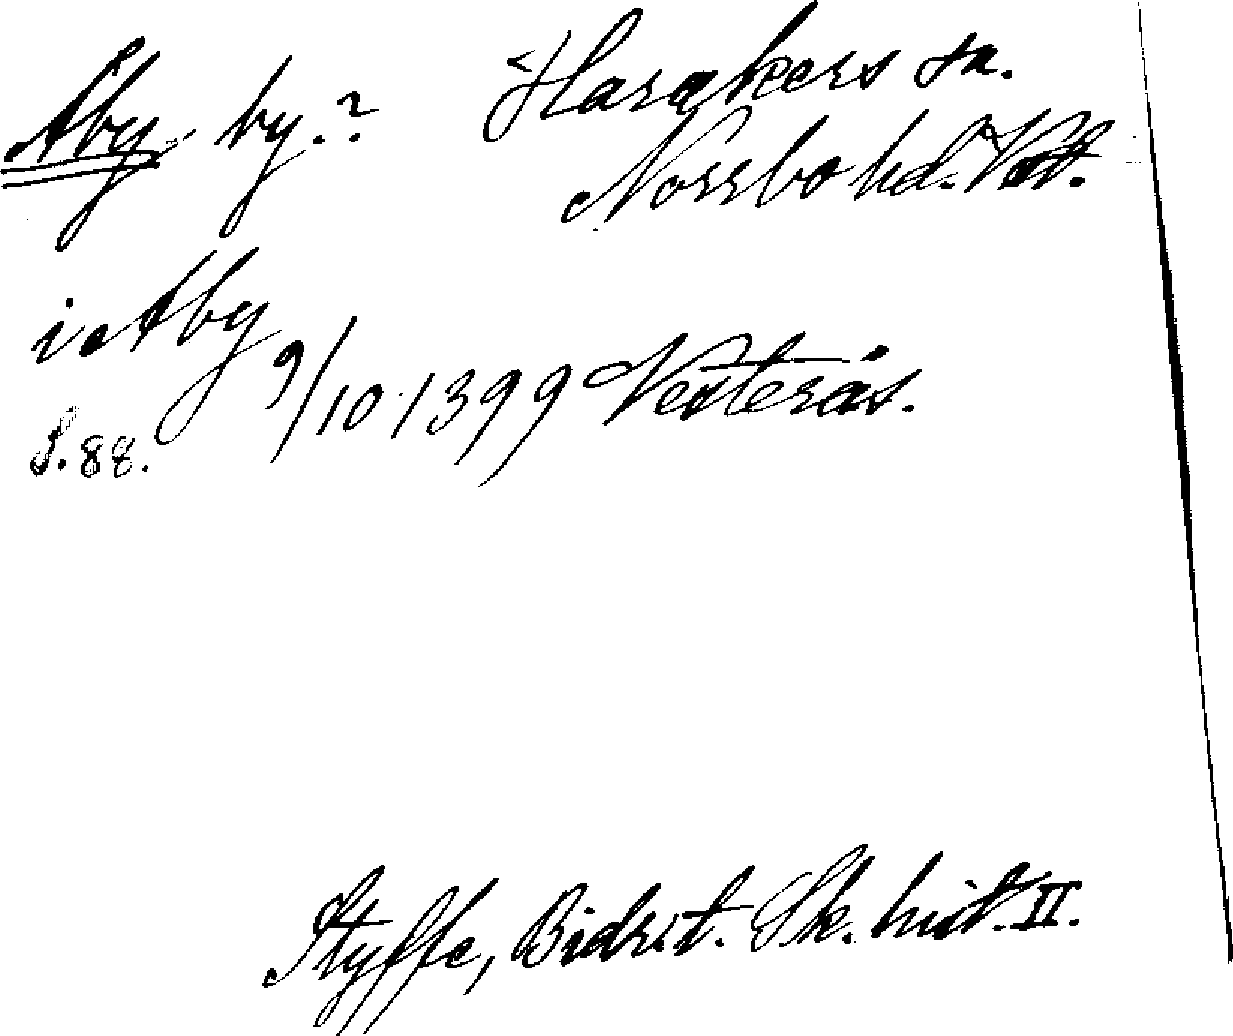 Åby by.? Harakers sn.
Norrbo hd. Vstl.
i Aby
9/10 1399 Vesterås.
S. 88.
Styffe, Bidr. t. Sk. hist. II.